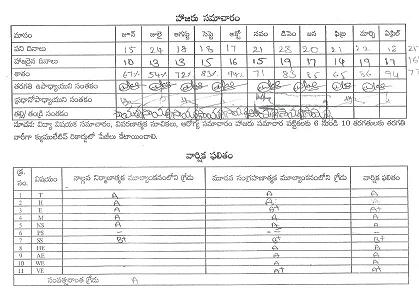 హాజరు సమాచారం
మాసం జూన్ జులై ఆగష్టు సెప్టెం అక్టో నవం డిసెం జన ఫిబ్ర మార్చి ఏప్రిల్
పని దినాలు 15 24 18 18 17 21 23 20 22 12
హాజరైన దినాలు 10 13 13 15 16 15 19 17 14 19
శాతం 67% 54% 72% 83% 94% 71 83 85 65 86 94
తరగతి ఉపాధ్యాయుని సంతకం
ప్రధానోపాధ్యాయుని సంతకం
తల్లి/ తండ్రి సంతకం
సూచన: విద్యా విషయక సమాచారం, వివరణాత్మక సూచికలు, ఆరోగ్య సమాచారం హాజరు సమాచార పట్టికలకు 6 నుండి 10 తరగతులకు తరగతి
వారీగా క్యుములేటివ్ రికార్డులో పేజీలు కేటాయించాలి.
వార్షిక ఫలితం
క్ర. సం. విషయం నాల్గవ నిర్మాణాత్మక మూల్యాంకనంలోని గ్రేడు మూడవ సంగ్రహణాత్మక మూల్యాంకనంలోని గ్రేడు వార్షిక ఫలితం
1 T A A A
2 H A A A
3 E A A+ A
4 M A A A
5 NS A A A
6 PS - - -
7 SS B+ A B+
8 HE A A
9 AE A A
10 WE A A
11 VE A+ A+
సంవత్సరాంత గ్రేడు A